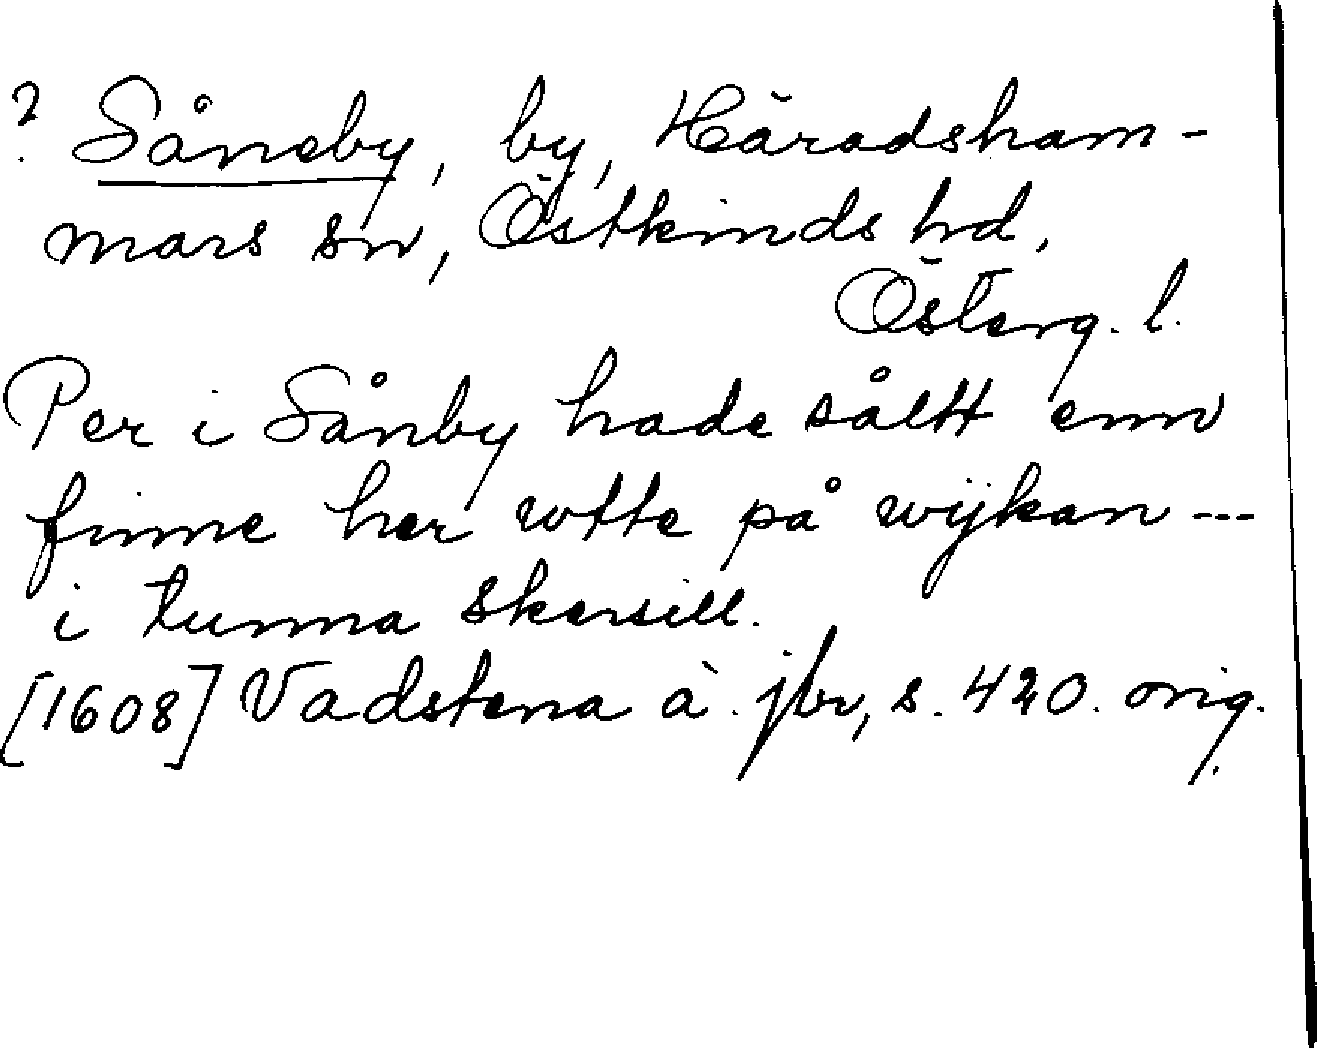 ? Såneby, by, Häradsham-
mars sn, Östkinds hd,
Österg. l.
Per i Sånby hade såltt enn
finne her wtte på wijkan ---
i tunna skersill.
[1608] Vadstena ä. jbr, s. 420. orig.